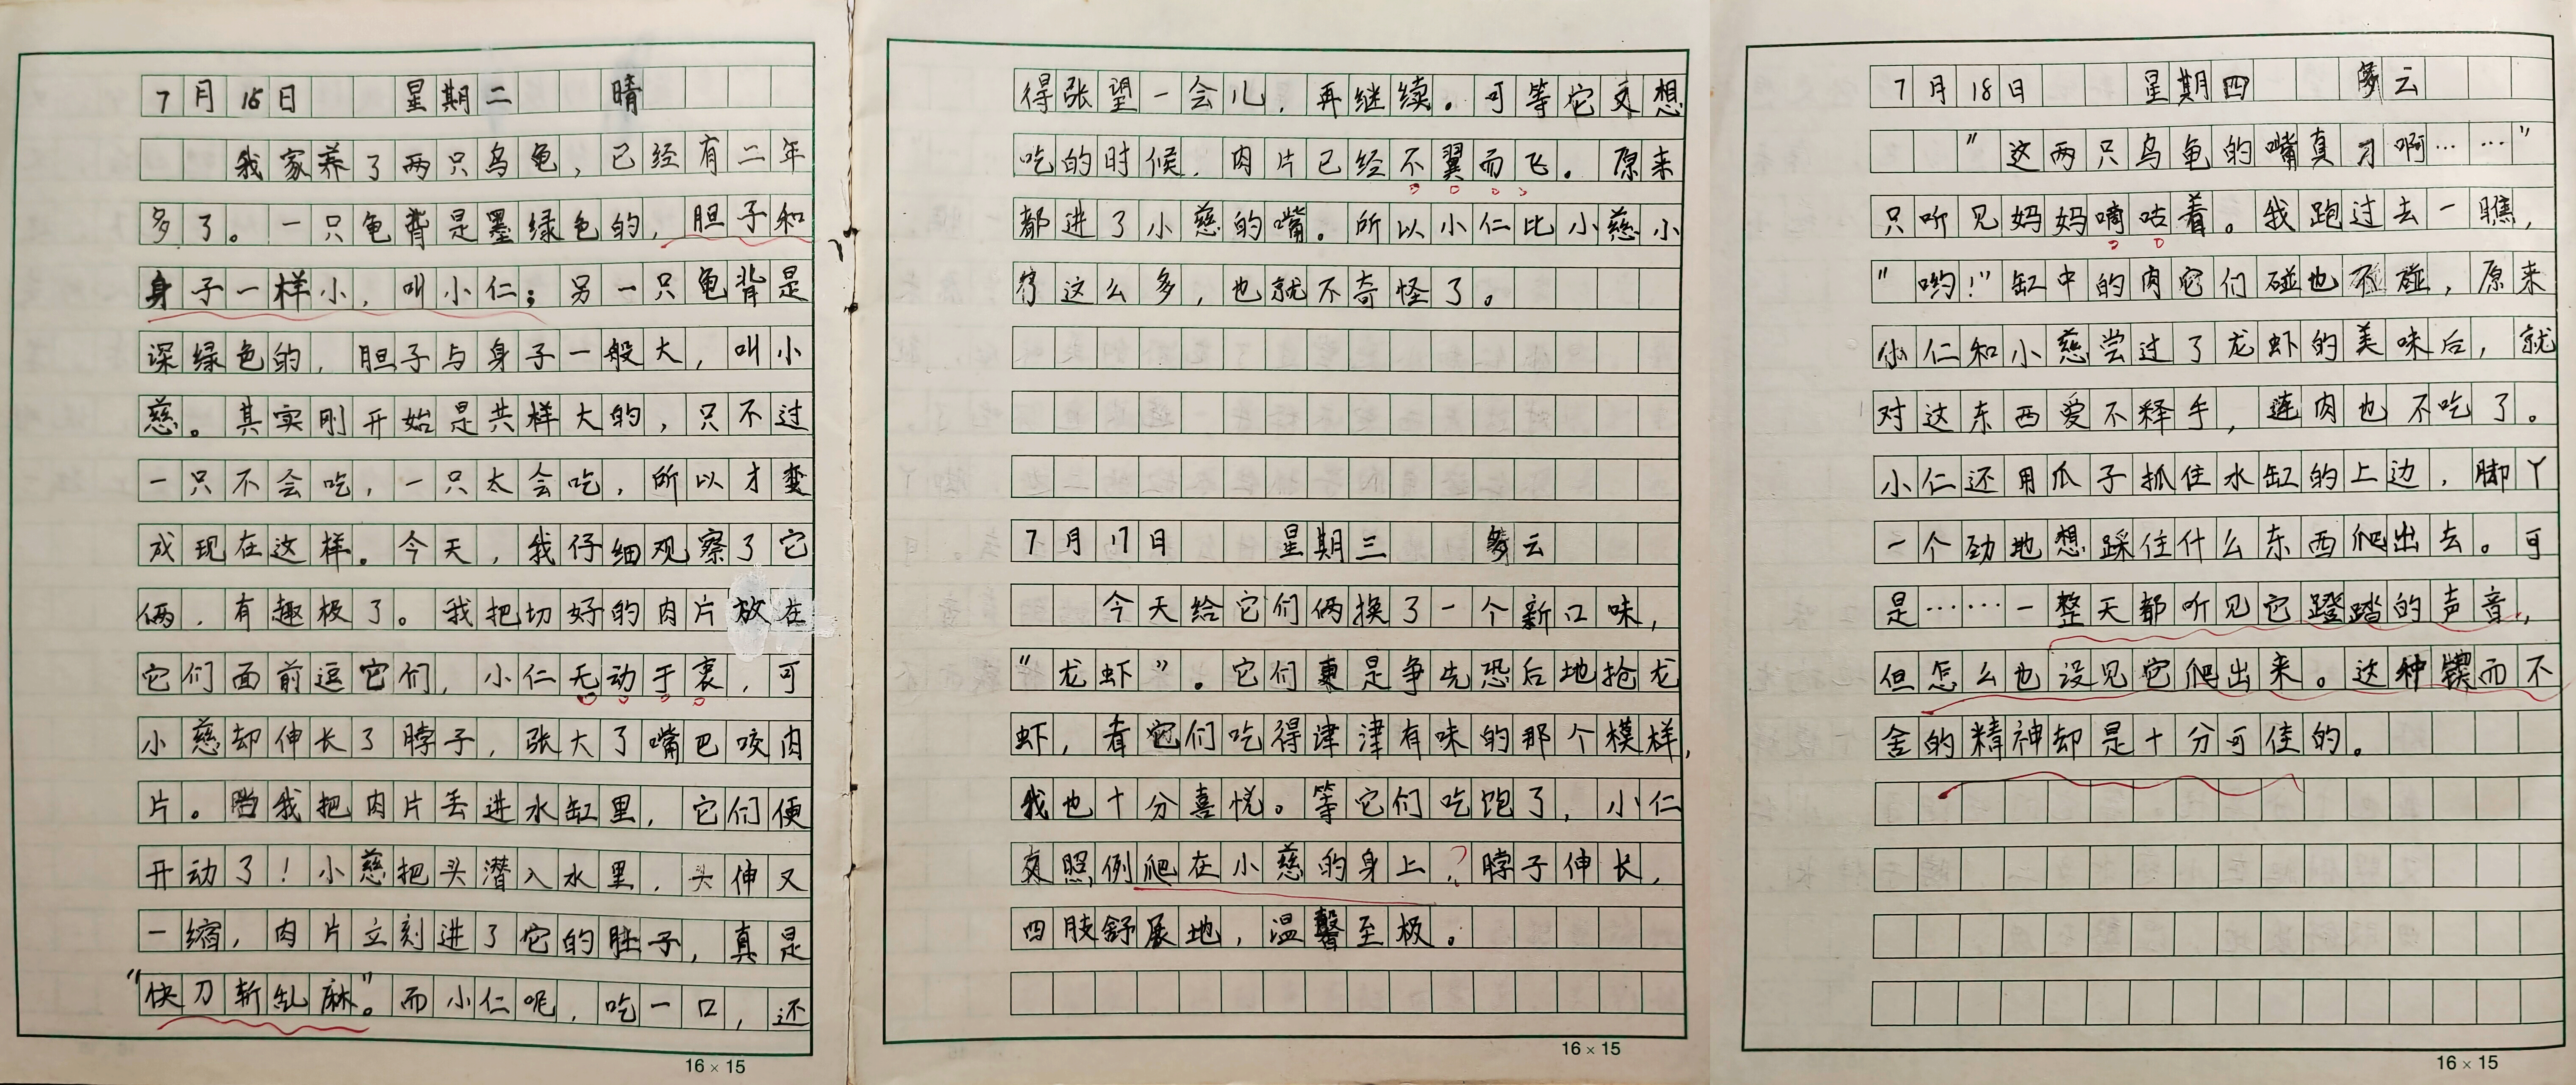 7月16日 星期二 晴
我家养了两只乌龟，已经有二年
多了。一只龟背是墨绿色的，胆子和
身子一样小，叫小仁；另一只龟背是
深绿色的，胆子与身子一般大，叫小
慈。其实刚开始是共样大的，只不过
一只不会吃，一只太会吃，所以才变
成现在这样。今天，我仔细观察了它
俩，有趣极了。我把切好的肉片放在
它们面前逗它们，小仁无动于衷，可
小慈却伸长了脖子，张大了嘴巴咬肉
片。当我把肉片丢进水缸里，它们便
开动了！小慈把头潜入水里，头伸又
一缩，肉片立刻进了它的肚子，真是
“快刀斩乱麻”。而小仁呢，吃一口，还
16×15
得张望一会儿，再继续。可等它又想
吃的时候，肉片已经不翼而飞。原来
都进了小慈的嘴。所以小仁比小慈小
得这么多，也就不奇怪了。
7月17日 星期三 多云
今天给它们俩换了一个新口味，
“龙虾”。它们更是争先恐后地抢龙
虾，看它们吃得津津有味的那个模样，
我也十分喜悦。等它们吃饱了，小仁
又照例爬在小慈的身上？脖子伸长，
四肢舒展地，温馨至极。
16×15
7月18日 星期四 多云
“这两只乌龟的嘴真刁啊……”
只听见妈妈嘀咕着。我跑过去一瞧，
“哟！”缸中的肉它们碰也不碰，原来
小仁和小慈尝过了龙虾的美味后，就
对这东西爱不释手，连肉也不吃了。
小仁还用爪子抓住水缸的上边，脚丫
一个劲地想踩住什么东西爬出去。可
是……一整天都听见它蹬踏的声音，
但怎么也没见它爬出来。这种锲而不
舍的精神却是十分可佳的。
16×15